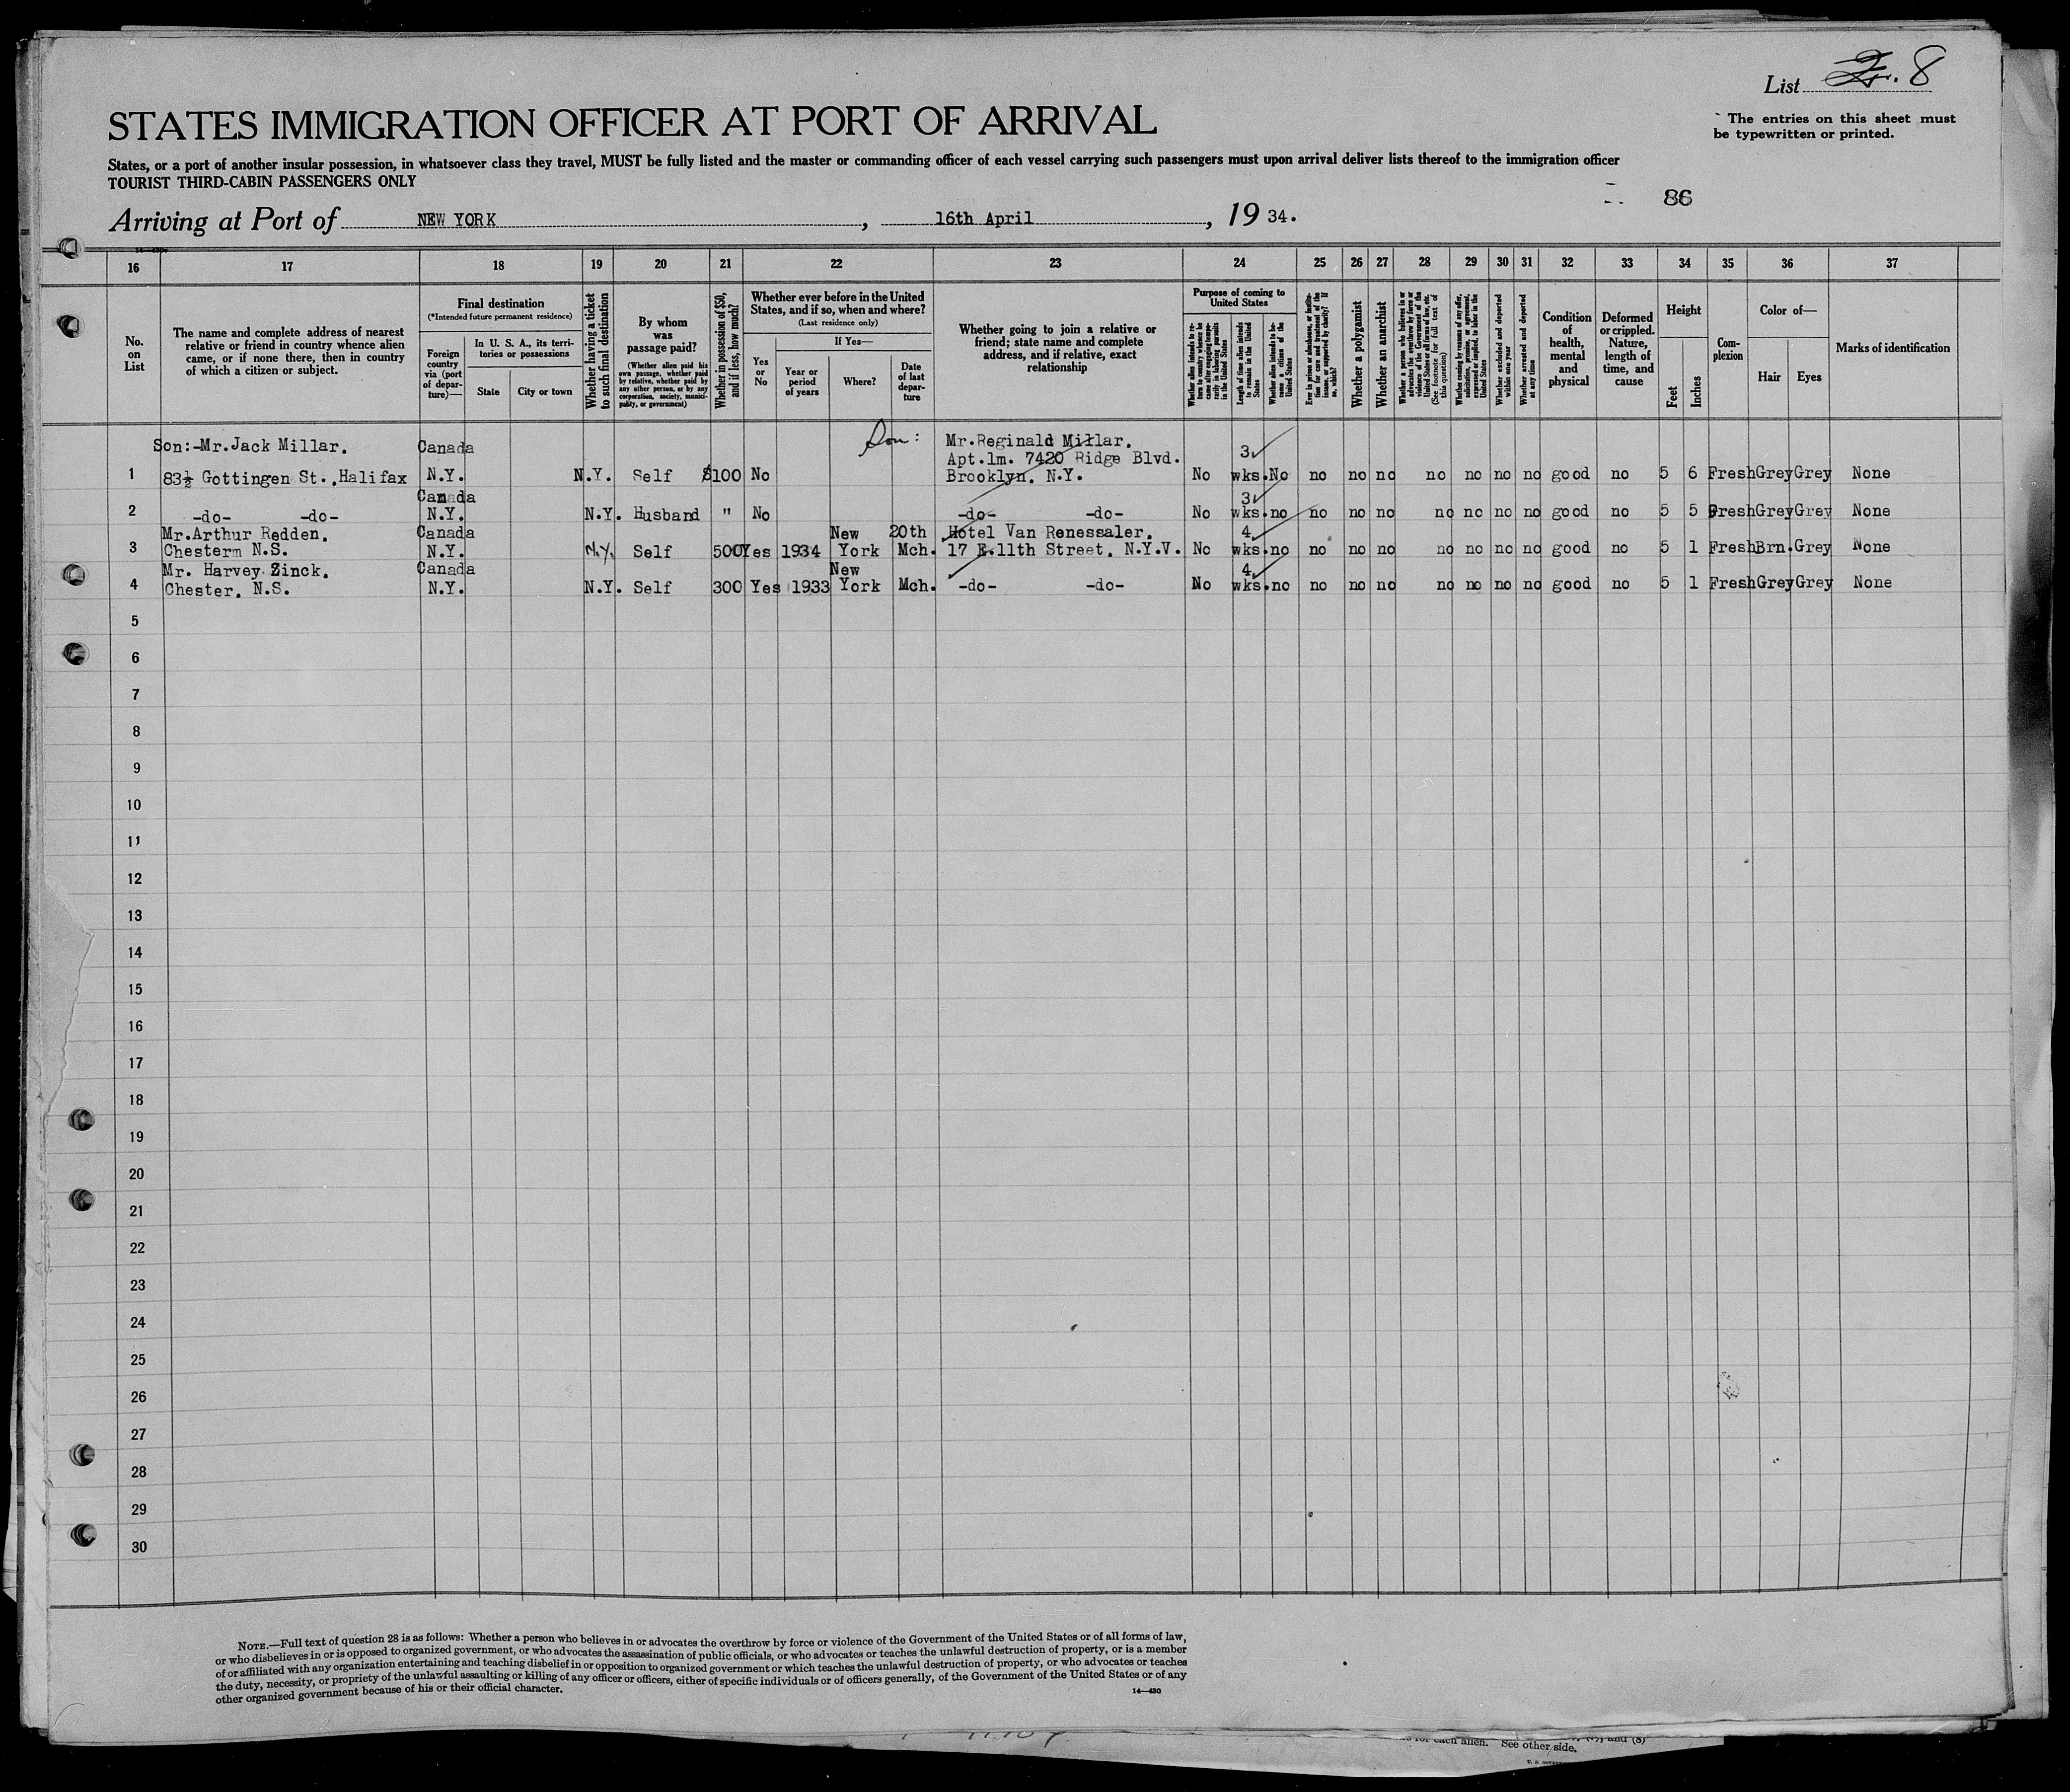 List 8
STATES IMMIGRATION OFFICER AT PORT OF ARRIVAL
` The entries on this sheet must
be typewritten or printed.
States, or a port of another insular possession, in whatsoever class they travel, MUST be fully listed and the master or commanding officer of each vessel carrying such passengers must upon arrival deliver lists thereof to the immigration officer
TOURIST THIRD-CABIN PASSENGERS ONLY
86
Arriving at Port of NEW YORK, 16th April, 19 34.
16 17 18 19 20 21 22 23 24 25 26 27 28 29 30 31 32 33 34 35 36 37
No.
on
List
The name and complete address of nearest
relative or friend in country whence alien
came, or if none there, then in country
of which a citizen or subject.
Final destination
(*Intended future permanent residence)
Foreign
country
via (port
of depar-
ture)—
In U. S. A., its terri-
tories or possessions
State City or town
Whether having a ticket
to such final destination
By whom
was
passage paid?
(Whether alien paid his
own passage, whether paid
by relative, whether paid by
any other person, or by any
corporation, society, munici-
pality, or government)
Whether in possession of $50,
and if less, how much?
Whether ever before in the United
States, and if so, when and where?
(Last residence only)
Yes
or
No
If Yes—
Year or
period
of years
Where?
Date
of last
depar-
ture
Whether going to join a relative or
friend; state name and complete
address, and if relative, exact
relationship
Purpose of coming to
United States
Whether alien intends to re-
turn to country whence he
came after engaging tempo-
rarily in laboring pursuits
in the United States
Length of time alien intends
to remain in the United
States
Whether alien intends to be-
come a citizen of the
United States
Ever in prison or almshouse, or institu-
tion for care and treatment of the
insane, or supported by charity? If
so, which?
Whether a polygamist
Whether an anarchist
Whether a person who believes in or
advocates the overthrow by force or
violence of the Government of the
United States or all forms of law, etc.
(See footnote for full text of
this question)
Whether coming by reasons of any offer,
solicitation, promise, or agreement,
expressed or implied, to labor in the
United States
Whether excluded and deported
within one year
Whether arrested and deported
at any time
Condition
of
health,
mental
and
physical
Deformed
or crippled.
Nature,
length of
time, and
cause
Height
Feet
Inches
Com-
plexion
Color of—
Hair Eyes
Marks of identification
Son:-Mr.Jack Millar. Canada Son: Mr.Reginald Millar. 3
Apt.1m. 7420 Ridge Blvd.
1 83½ Gottingen St.,Halifax N.Y. N.Y. Self $100 No Brooklyn. N.Y. No wks. No no no no no no no no good no 5 6 Fresh Grey Grey None
Canada 3
2 -do- -do- N.Y. N.Y. Husband " No -do- -do- No wks. no no no no no no no no good no 5 5 Fresh Grey Grey None
Mr.Arthur Redden. Canada New 20th Hotel Van Renessaler. 4
3 Chesterm N.S. N.Y. N.Y. Self 500 Yes 1934 York Mch. 17 E.11th Street. N.Y.V. No wks. no no no no no no no no good no 5 1 Fresh Brn. Grey None
Mr. Harvey Zinck. Canada New 4
4 Chester. N.S. N.Y. N.Y. Self 300 Yes 1933 York Mch. -do- -do- No wks. no no no no no no no no good no 5 1 Fresh Grey Grey None
5
6
7
8
9
10
11
12
13
14
15
16
17
18
19
20
21
22
23
24
25
26
27
28
29
30
NOTE.—Full text of question 28 is as follows: Whether a person who believes in or advocates the overthrow by force or violence of the Government of the United States or of all forms of law,
or who disbelieves in or is opposed to organized government, or who advocates the assassination of public officials, or who advocates or teaches the unlawful destruction of property, or is a member
of or affiliated with any organization entertaining and teaching disbelief in or opposition to organized government or which teaches the unlawful destruction of property, or who advocates or teaches
the duty, necessity, or propriety of the unlawful assaulting or killing of any officer or officers, either of specific individuals or of officers generally, of the Government of the United States or of any
other organized government because of his or their official character.
14—430
each alien. See other side.
and (8)